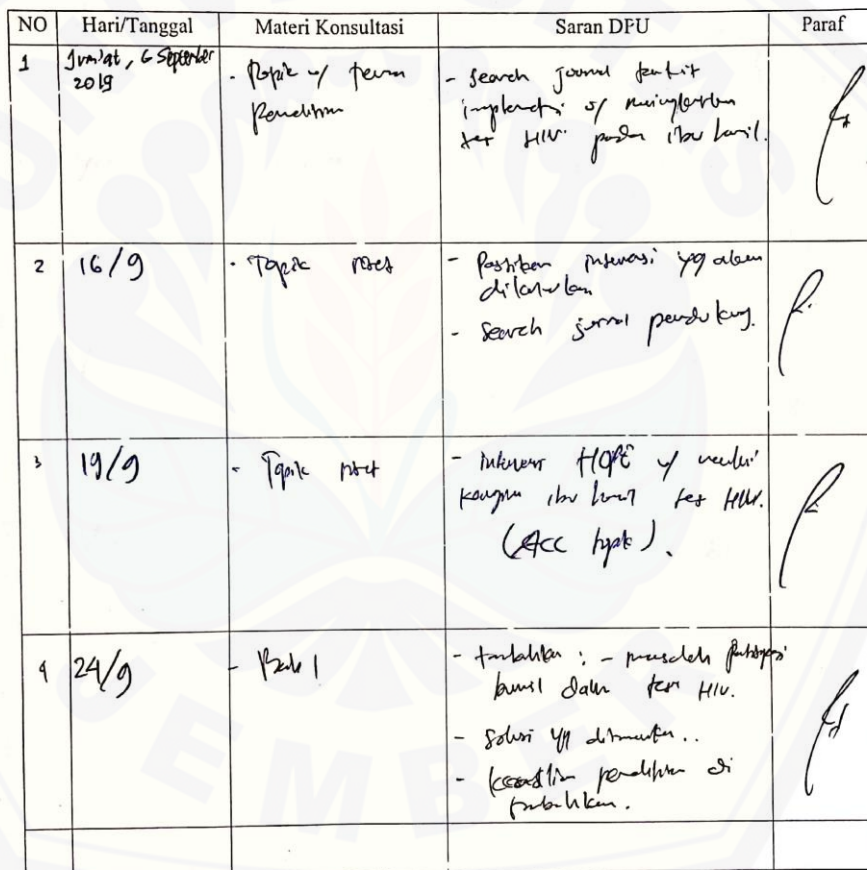 NO Hari/Tanggal Materi Konsultasi Saran DPU Paraf
1 Jum'at, 6 September
2019
- Topik
- Search journal terkait
tes HIV pada ibu hamil.
2 16/9 - Topik riset
- Pastikan intervensi yg akan
dilakukan
- Search jurnal pendukung.
3 19/9 - Topik riset
- intervensi HOPE
ibu hamil tes HIV.
(Acc topik).
4 24/9 - Bab 1
- tambahkan : - masalah partisipasi
bumil dalam tes HIV.
- Solusi yg ditawarkan..
- keaslian penelitian di
tambahkan.
JEMBER